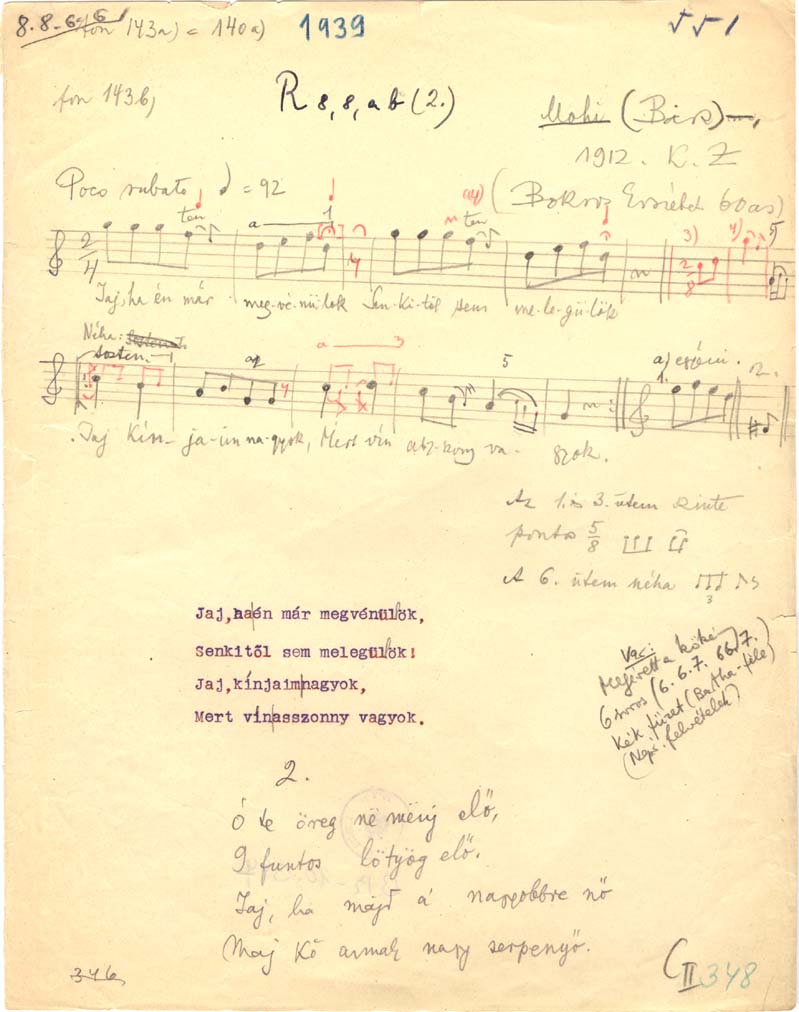 8.8.6.6
fon 143a) = 140a) 1939
fon 143b)
R 8,8,ab (2.)
Mohi (Bars)
1912. K. Z
Poco rubato ♩ = 92
(Bokros Erzsébet 60as)
ten a 1 ten 3) 4) 5
2/4 4 2/8
Jaj, ha én már meg-vé-nü-lök Sen-ki-től sem me-le-gü-lök
Néha:
sosten. a 3 5 a) 1. 2.
Jaj Kín-ja-im na-gyok, Mert vín asz-szony va-gyok.
Az 1. és 3. ütem szinte
pontos 5/8
A 6. ütem néha
3
Jaj, ha én már megvénülök,
Senkitől sem melegülök!
Jaj, kínjaim nagyok,
Mert vín asszonny vagyok.
Var:
Megérett a kökény
6 soros (6.6.7. 66.7.)
Kék füzet (Bartha-féle)
(Népr. felvételek)
2.
Ó te öreg né mënj elő,
9 funtos lötyög elő.
Jaj, ha majd á nagyobbre nő
Maj Kő annak nagy serpenyő.
346
C II 348